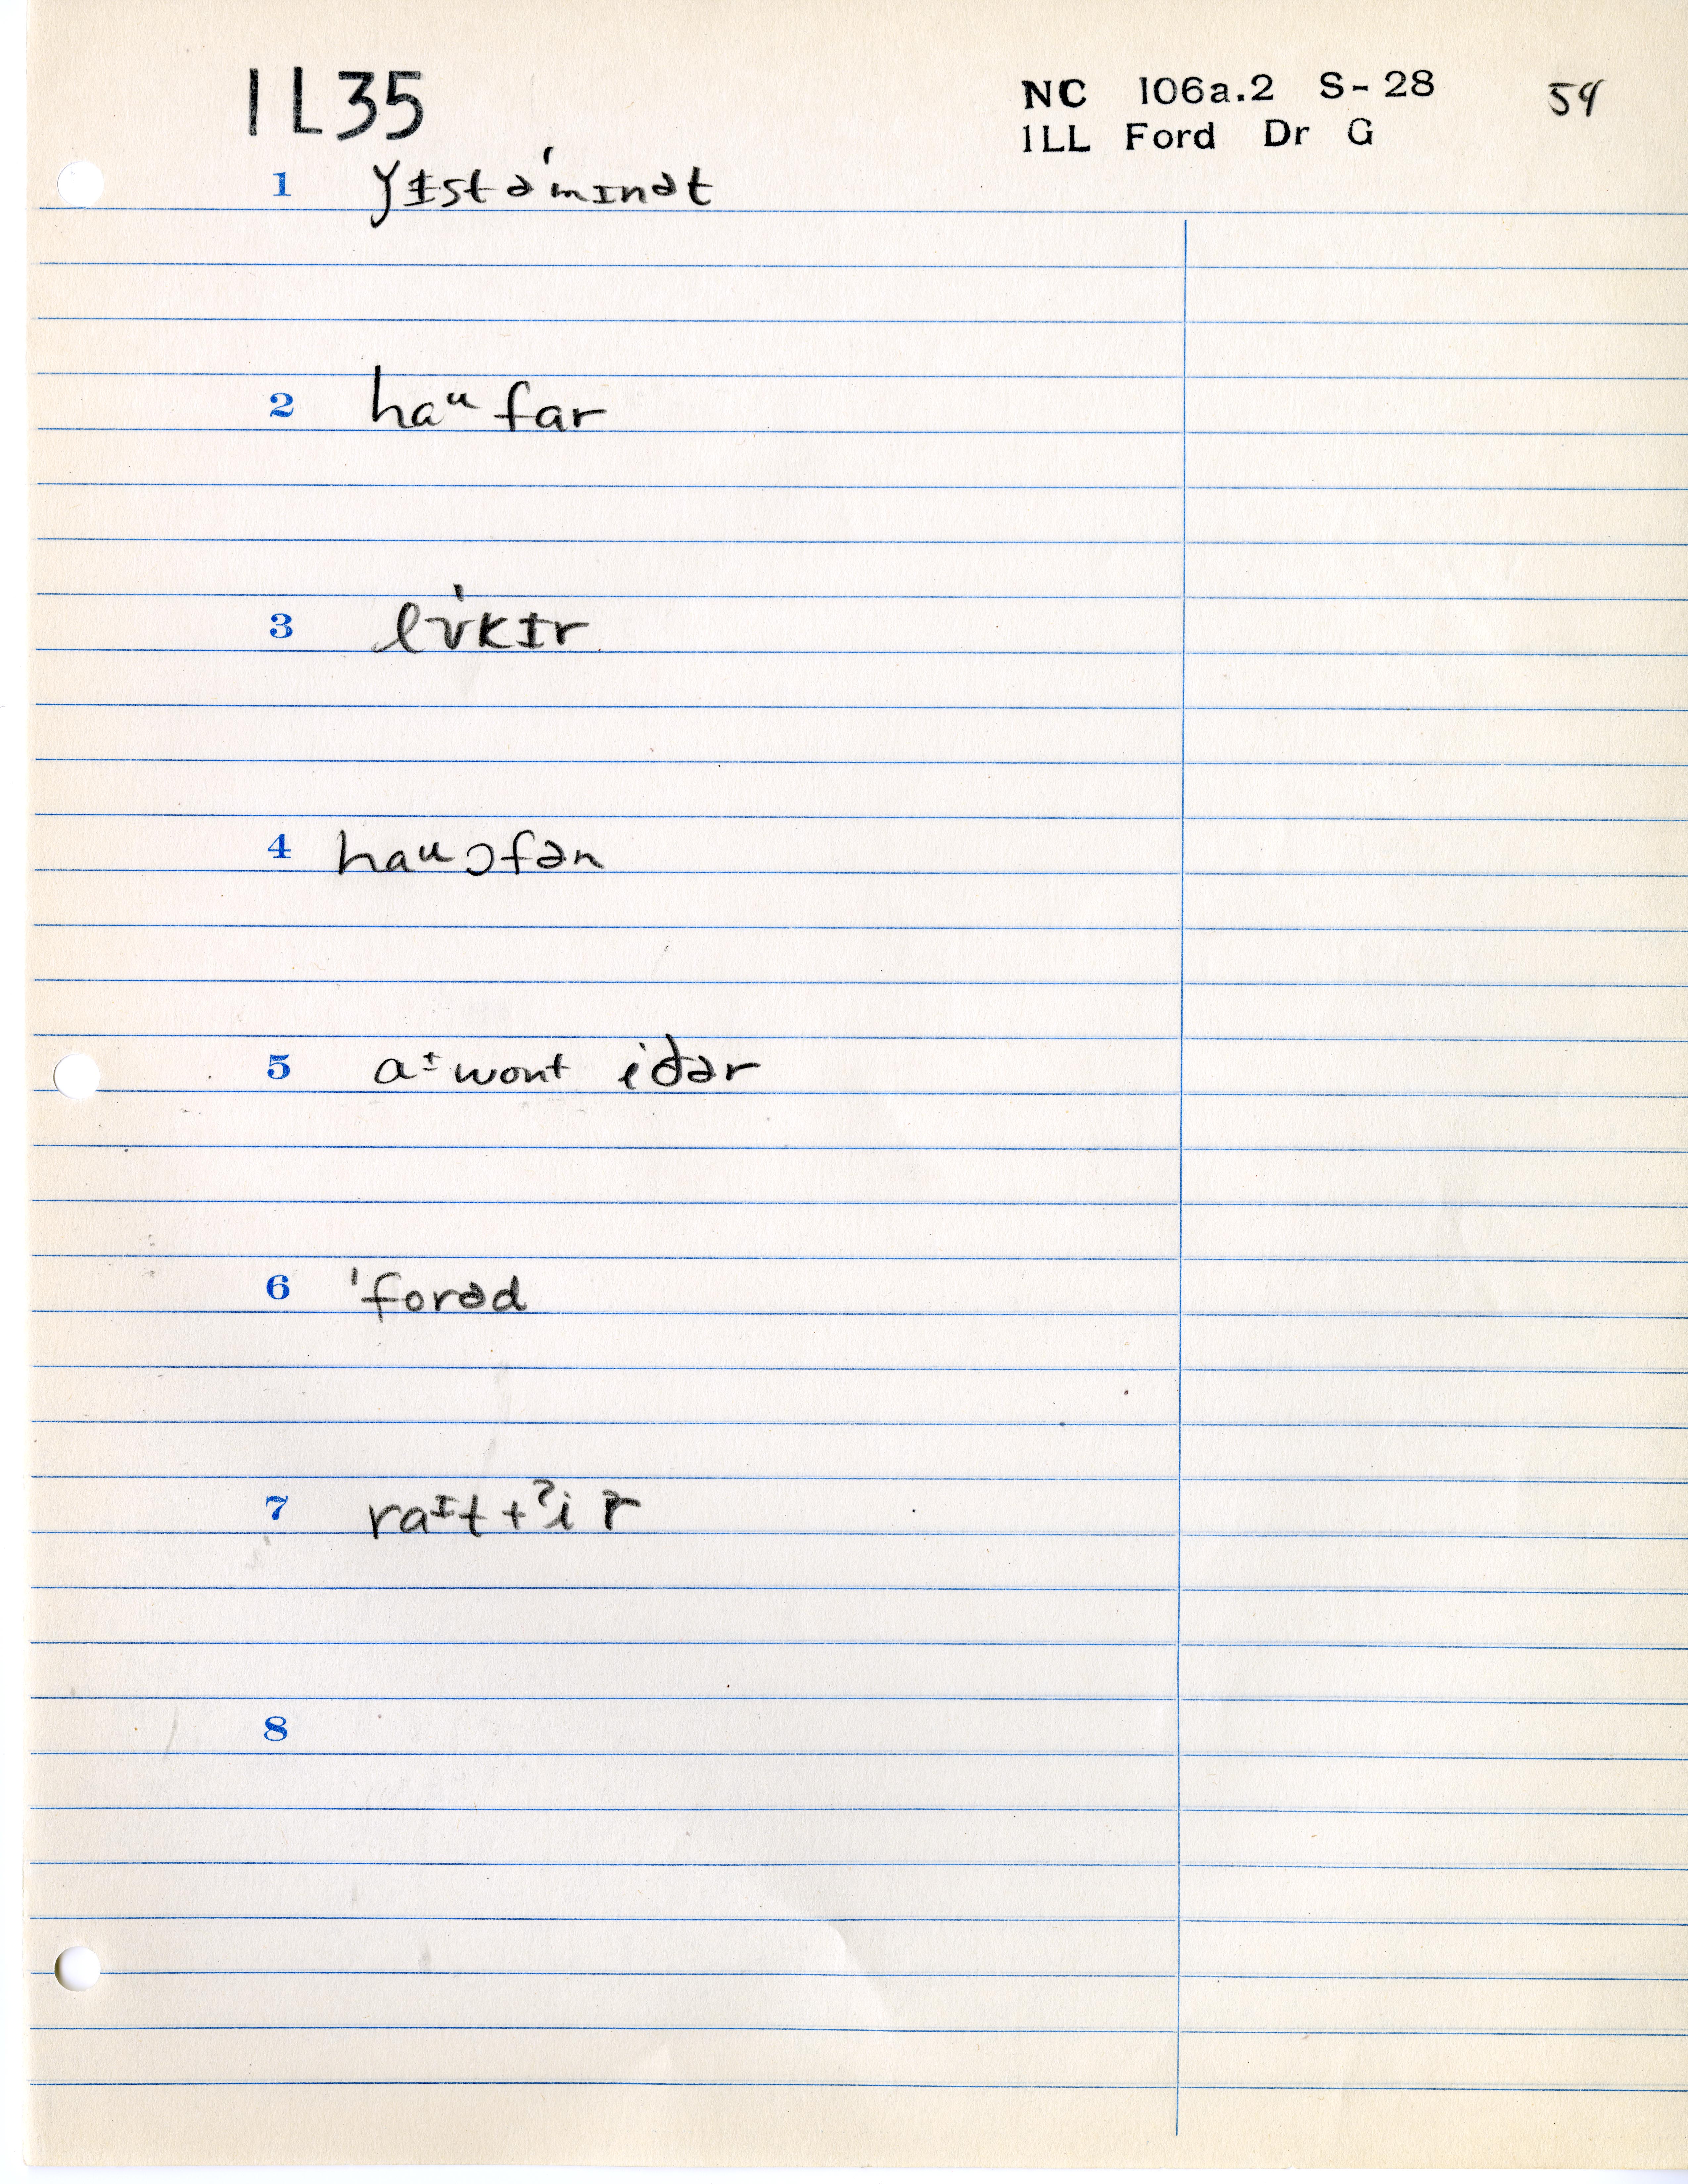 IL35
NC 106a.2 S-28 54
ILL Ford Dr G
1 yɪstə'mɪnət
2 haᵘ far
3 lʊ'kɪr
4 haᵘ ɔfən
5 aᶧ wont iðər
6 'forəd
7 raᶧt + ˀi r
8